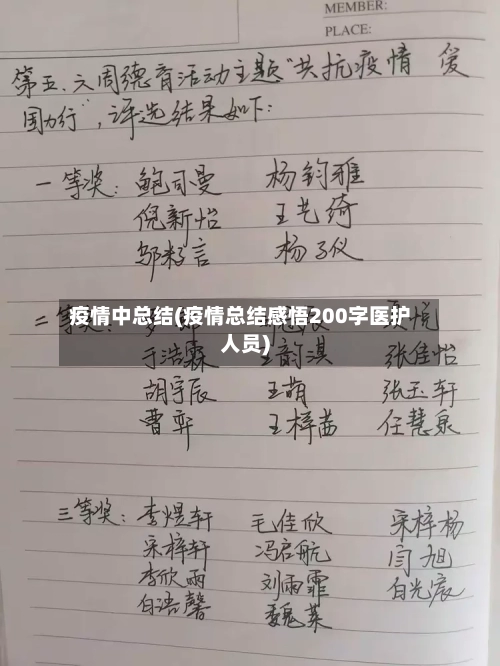 MEMBER:
PLACE:
第五、六周德育活动主题“共抗疫情 爱
国力行”，评选结果如下：
一等奖：鲍司曼 杨钧雅
倪新怡 王艺绮
邬籽言 杨子仪
二等奖：
疫情中总结(疫情总结感悟200字医护
人员)
于浩霖 王韵淇 张佳怡
胡宇辰 王萌 张玉轩
曹弈 王梓茜 任慧泉
三等奖：李煜轩 毛佳欣 宋梓杨
宋梓轩 冯启航 闫旭
李欣雨 刘雨霏 白光宸
白浯馨 魏莱